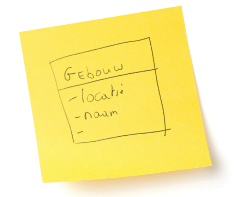 Gebouw
- locatie
- naam
-